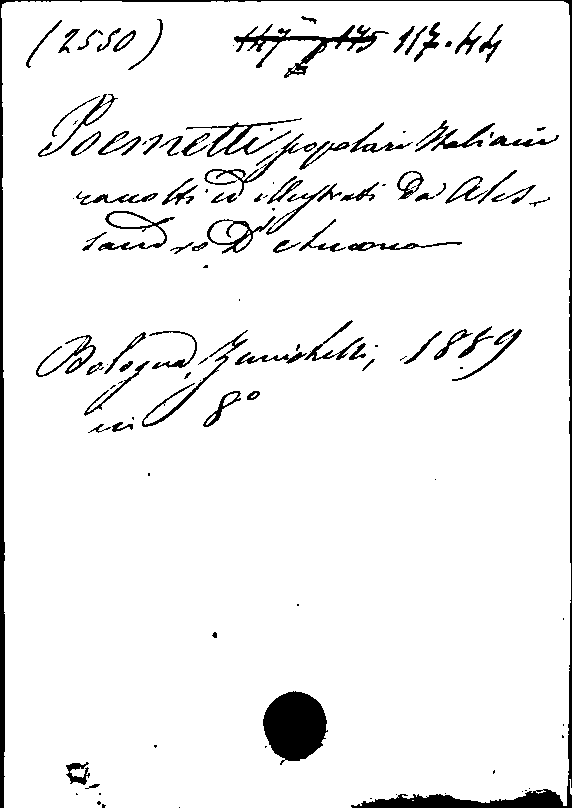 (2550) 117.44
Poemetti popolari Italiani
raccolti ed illustrati Da Ales-
sandro D'Ancona
Bologna, Zanichelli, 1889
in 8°